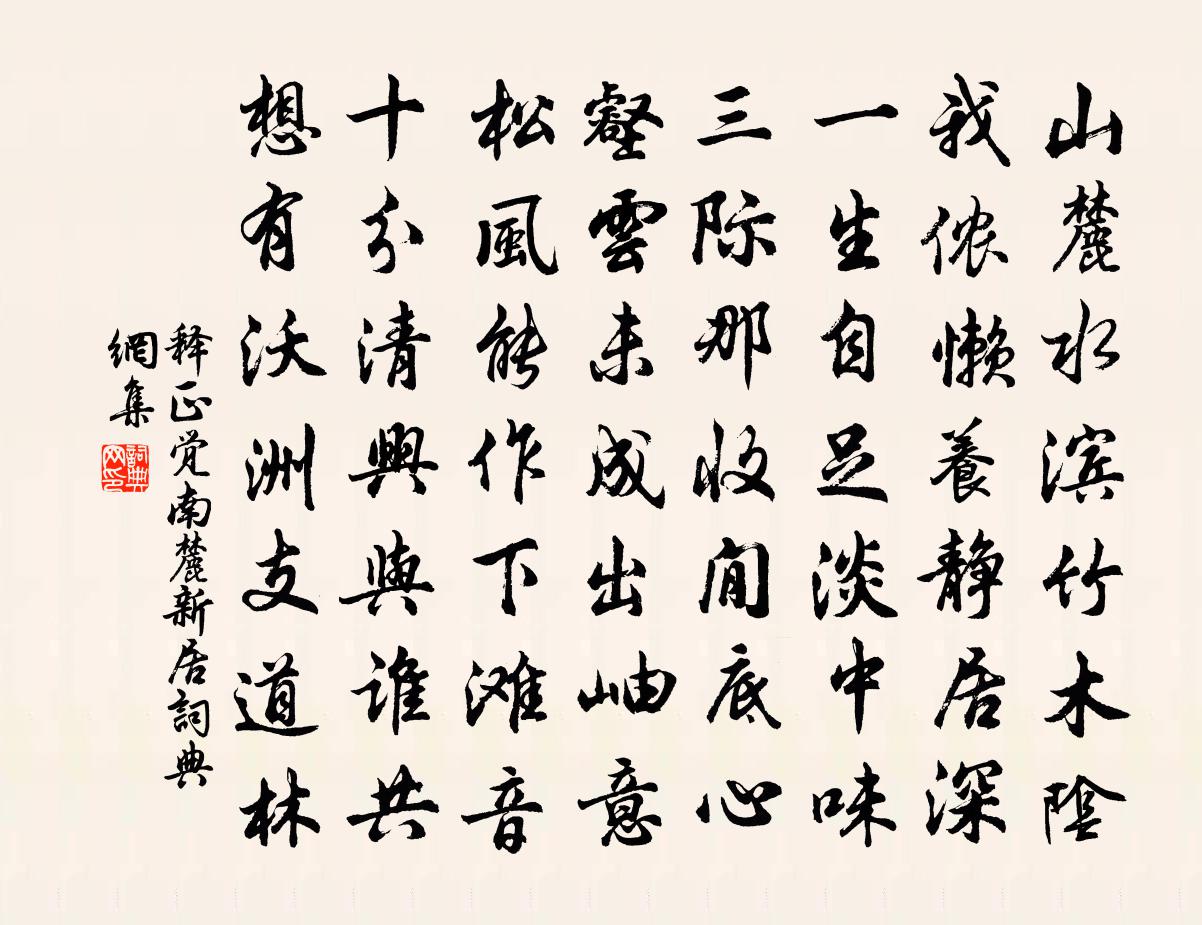 山麓水滨竹木陰
我侬懒養静居深
一生自足淡中味
三际那收间底心
壑雲未成出岫意
松風能作下滩音
十分清興與谁共
想有沃洲支道林
释正觉南麓新居詞典
網集
詞典
网印